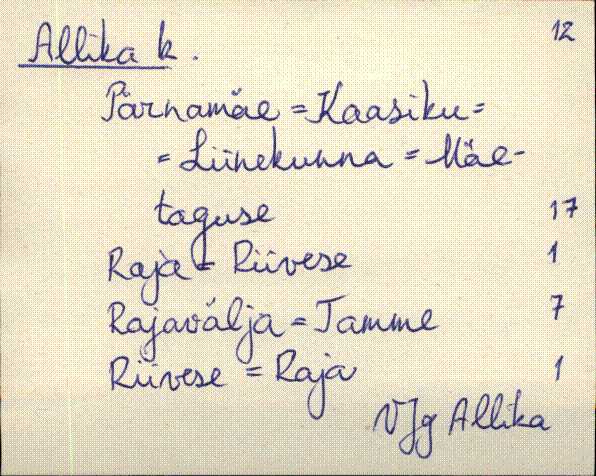 Allika k. 12
Pärnamäe = Kaasiku =
= Liinekunna = Mäe-
taguse 17
Raja = Riivese 1
Rajavälja = Tamme 7
Riivese = Raja 1
VJg Allika